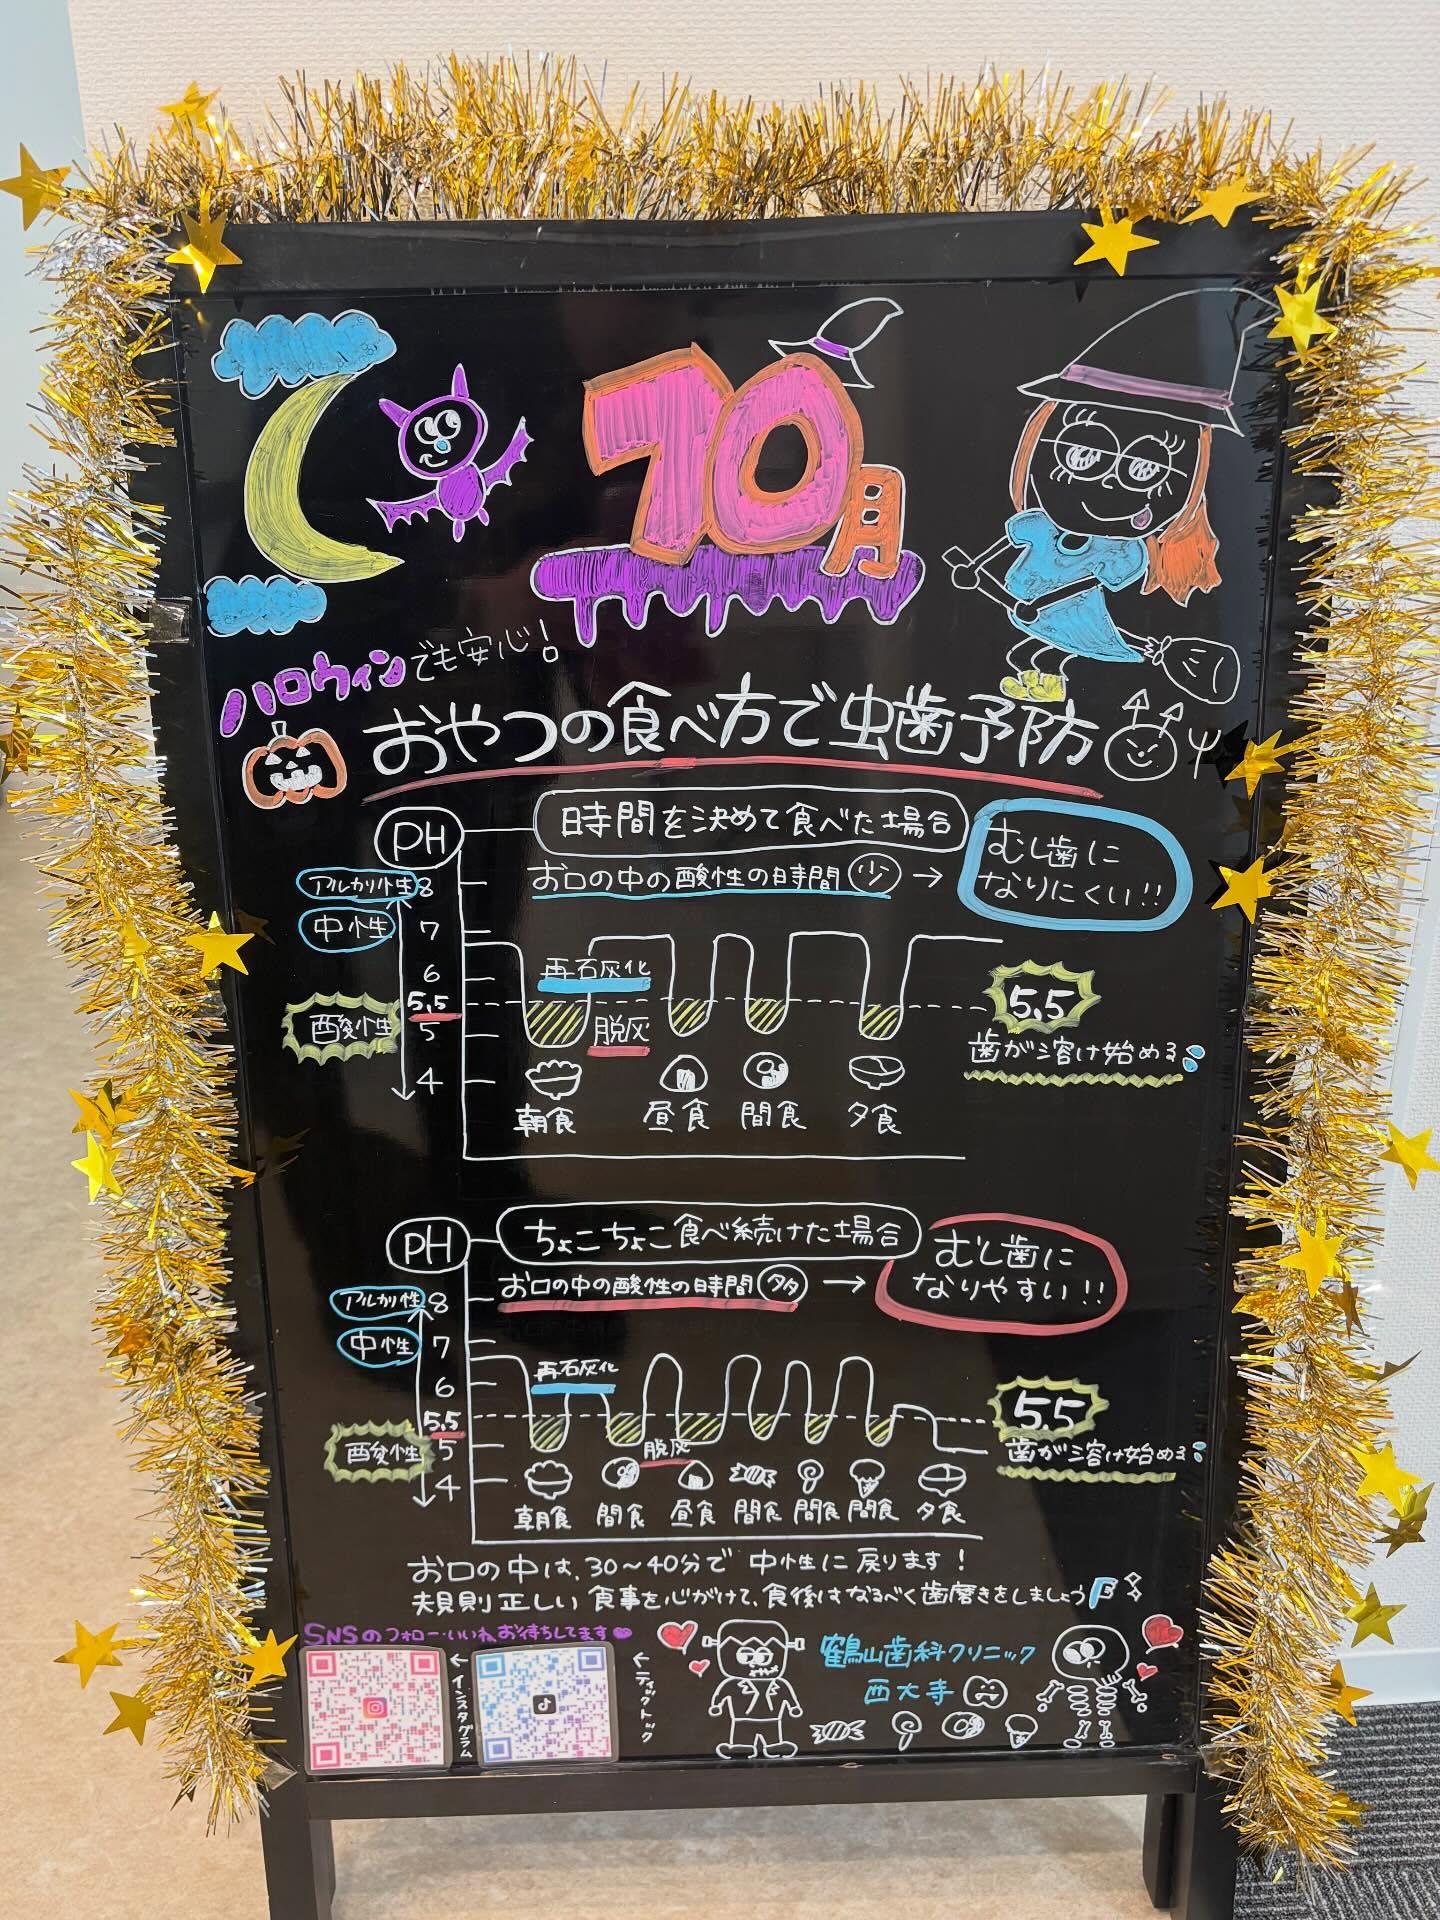 10月
ハロウィンでも安心!
おやつの食べ方で虫歯予防
PH
時間を決めて食べた場合
お口の中の酸性の時間 少 →
むし歯に
なりにくい!!
アルカリ性 8
中性 7
6
5.5
酸性 5
4
再石灰化
脱灰
5.5
歯が溶け始める
朝食 昼食 間食 夕食
PH
ちょこちょこ食べ続けた場合
お口の中の酸性の時間 多 →
むし歯に
なりやすい!!
アルカリ性 8
中性 7
6
5.5
酸性 5
4
再石灰化
脱灰
5.5
歯が溶け始める
朝食 間食 昼食 間食 間食 間食 夕食
お口の中は、30~40分で 中性に戻ります!
規則正しい 食事を心がけて、食後はなるべく歯磨きをしましょう
SNSのフォロー・いいねお待ちしてます
←インスタグラム
←ティックトック
鶴山歯科クリニック
西大寺